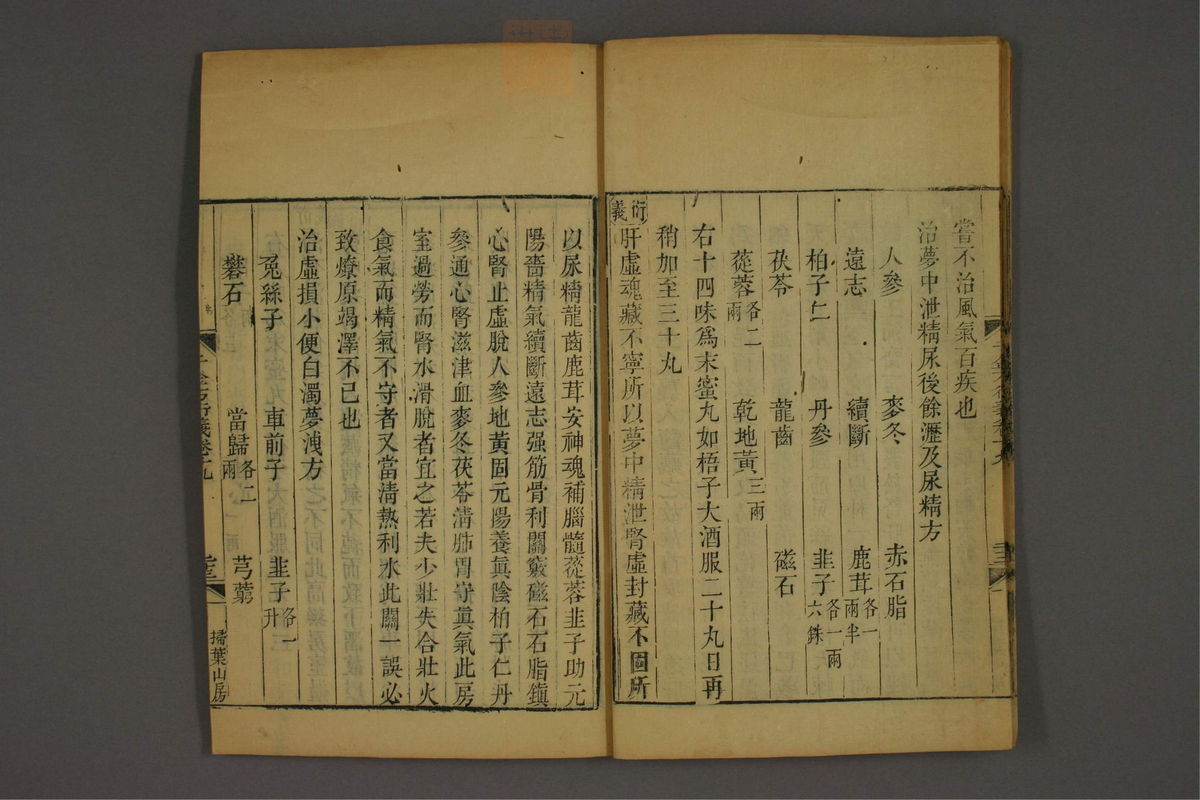 嘗不治風氣百疾也
治夢中泄精尿後餘瀝及尿精方
人參 麥冬 赤石脂
遠志 續斷 鹿茸各一兩半
柏子仁 丹參 韭子各一兩六銖
茯苓 龍齒 磁石
蓯蓉各二兩 乾地黃三兩
右十四味爲末蜜丸如梧子大酒服二十丸日再
稍加至三十丸
衍義肝虛魂藏不寧所以夢中精泄腎虛封藏不固所
以尿精龍齒鹿茸安神魂補腦髓蓯蓉韭子助元
陽嗇精氣續斷遠志强筋骨利關竅磁石石脂鎭
心腎止虛脫人參地黃固元陽養眞陰柏子仁丹
參通心腎滋津血麥冬茯苓淸肺胃守眞氣此房
室過勞而腎水滑脫者宜之若夫少壯失合壯火
食氣而精氣不守者又當淸熱利水此關一誤必
致燎原竭澤不已也
治虛損小便白濁夢洩方
菟絲子 車前子 韭子各一升
礬石 當歸各二兩 芎藭
三
掃葉山房